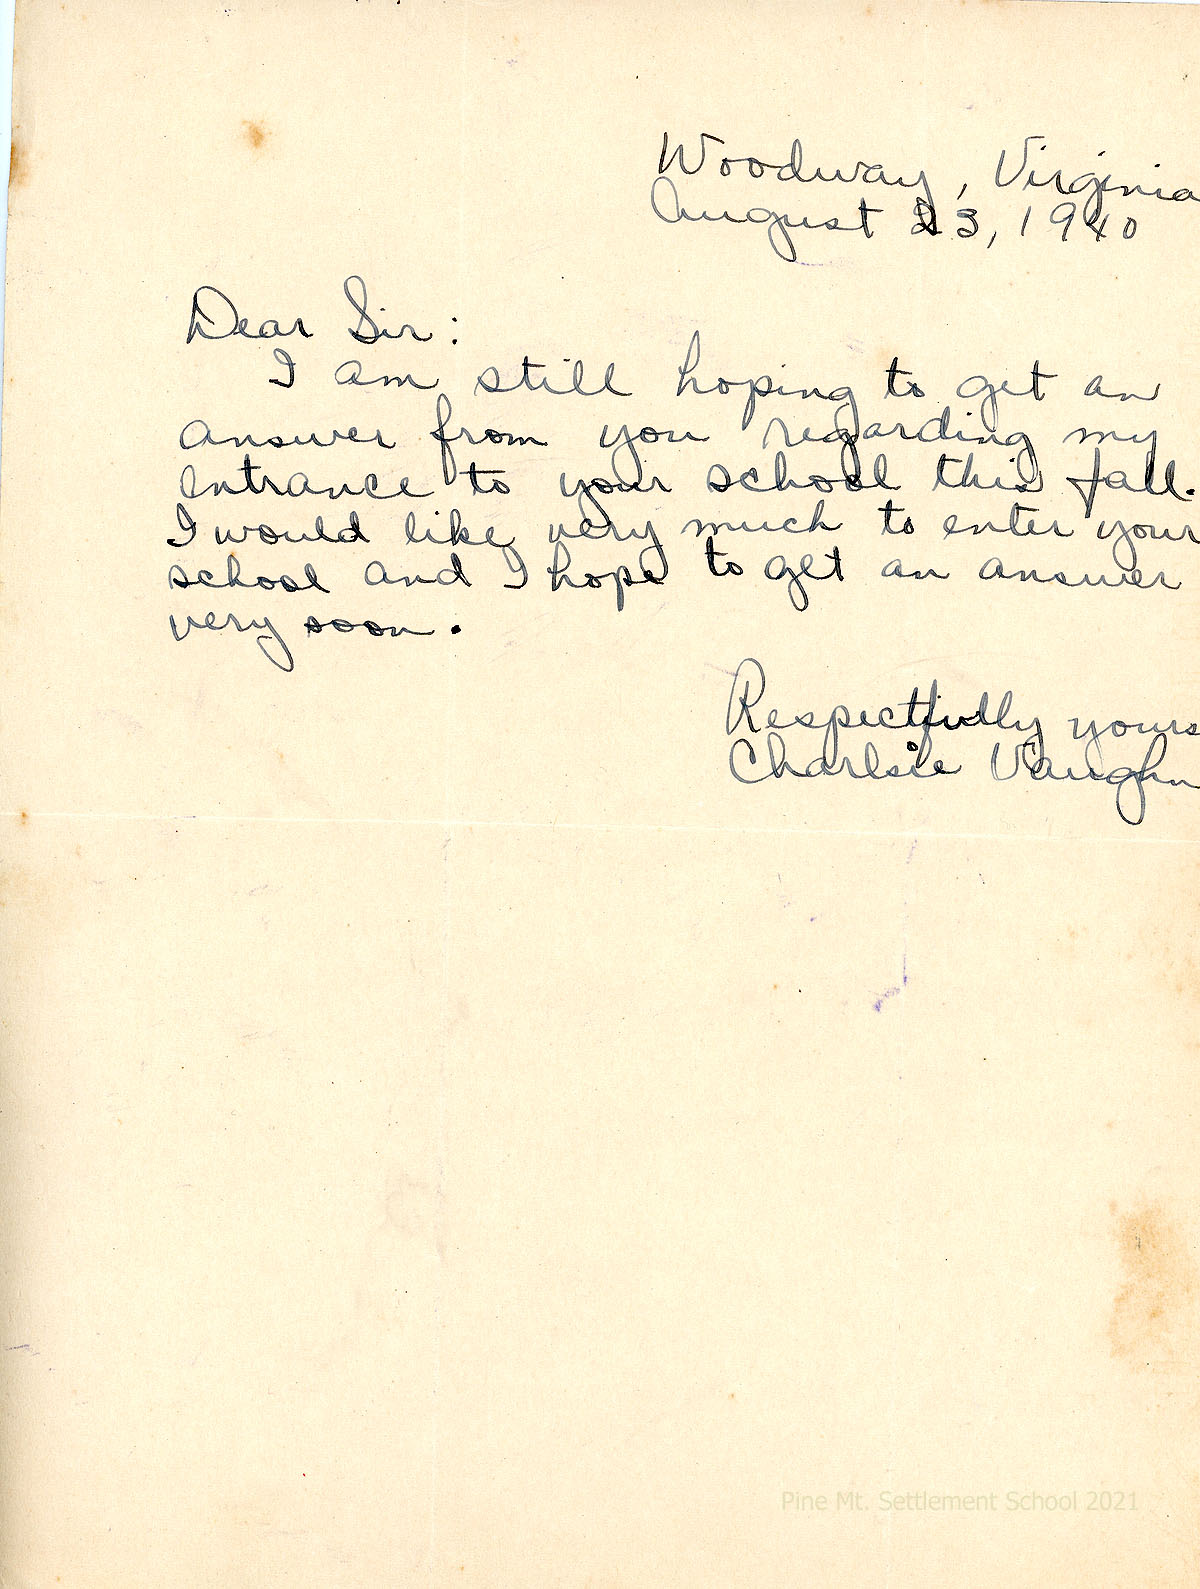 Woodway, Virginia
August 23, 1940
Dear Sir:
I am still hoping to get an
answer from you regarding my
entrance to your school this fall.
I would like very much to enter your
school and I hope to get an answer
very soon.
Respectfully yours
Charlsie Vaughn
Pine Mt. Settlement School 2021